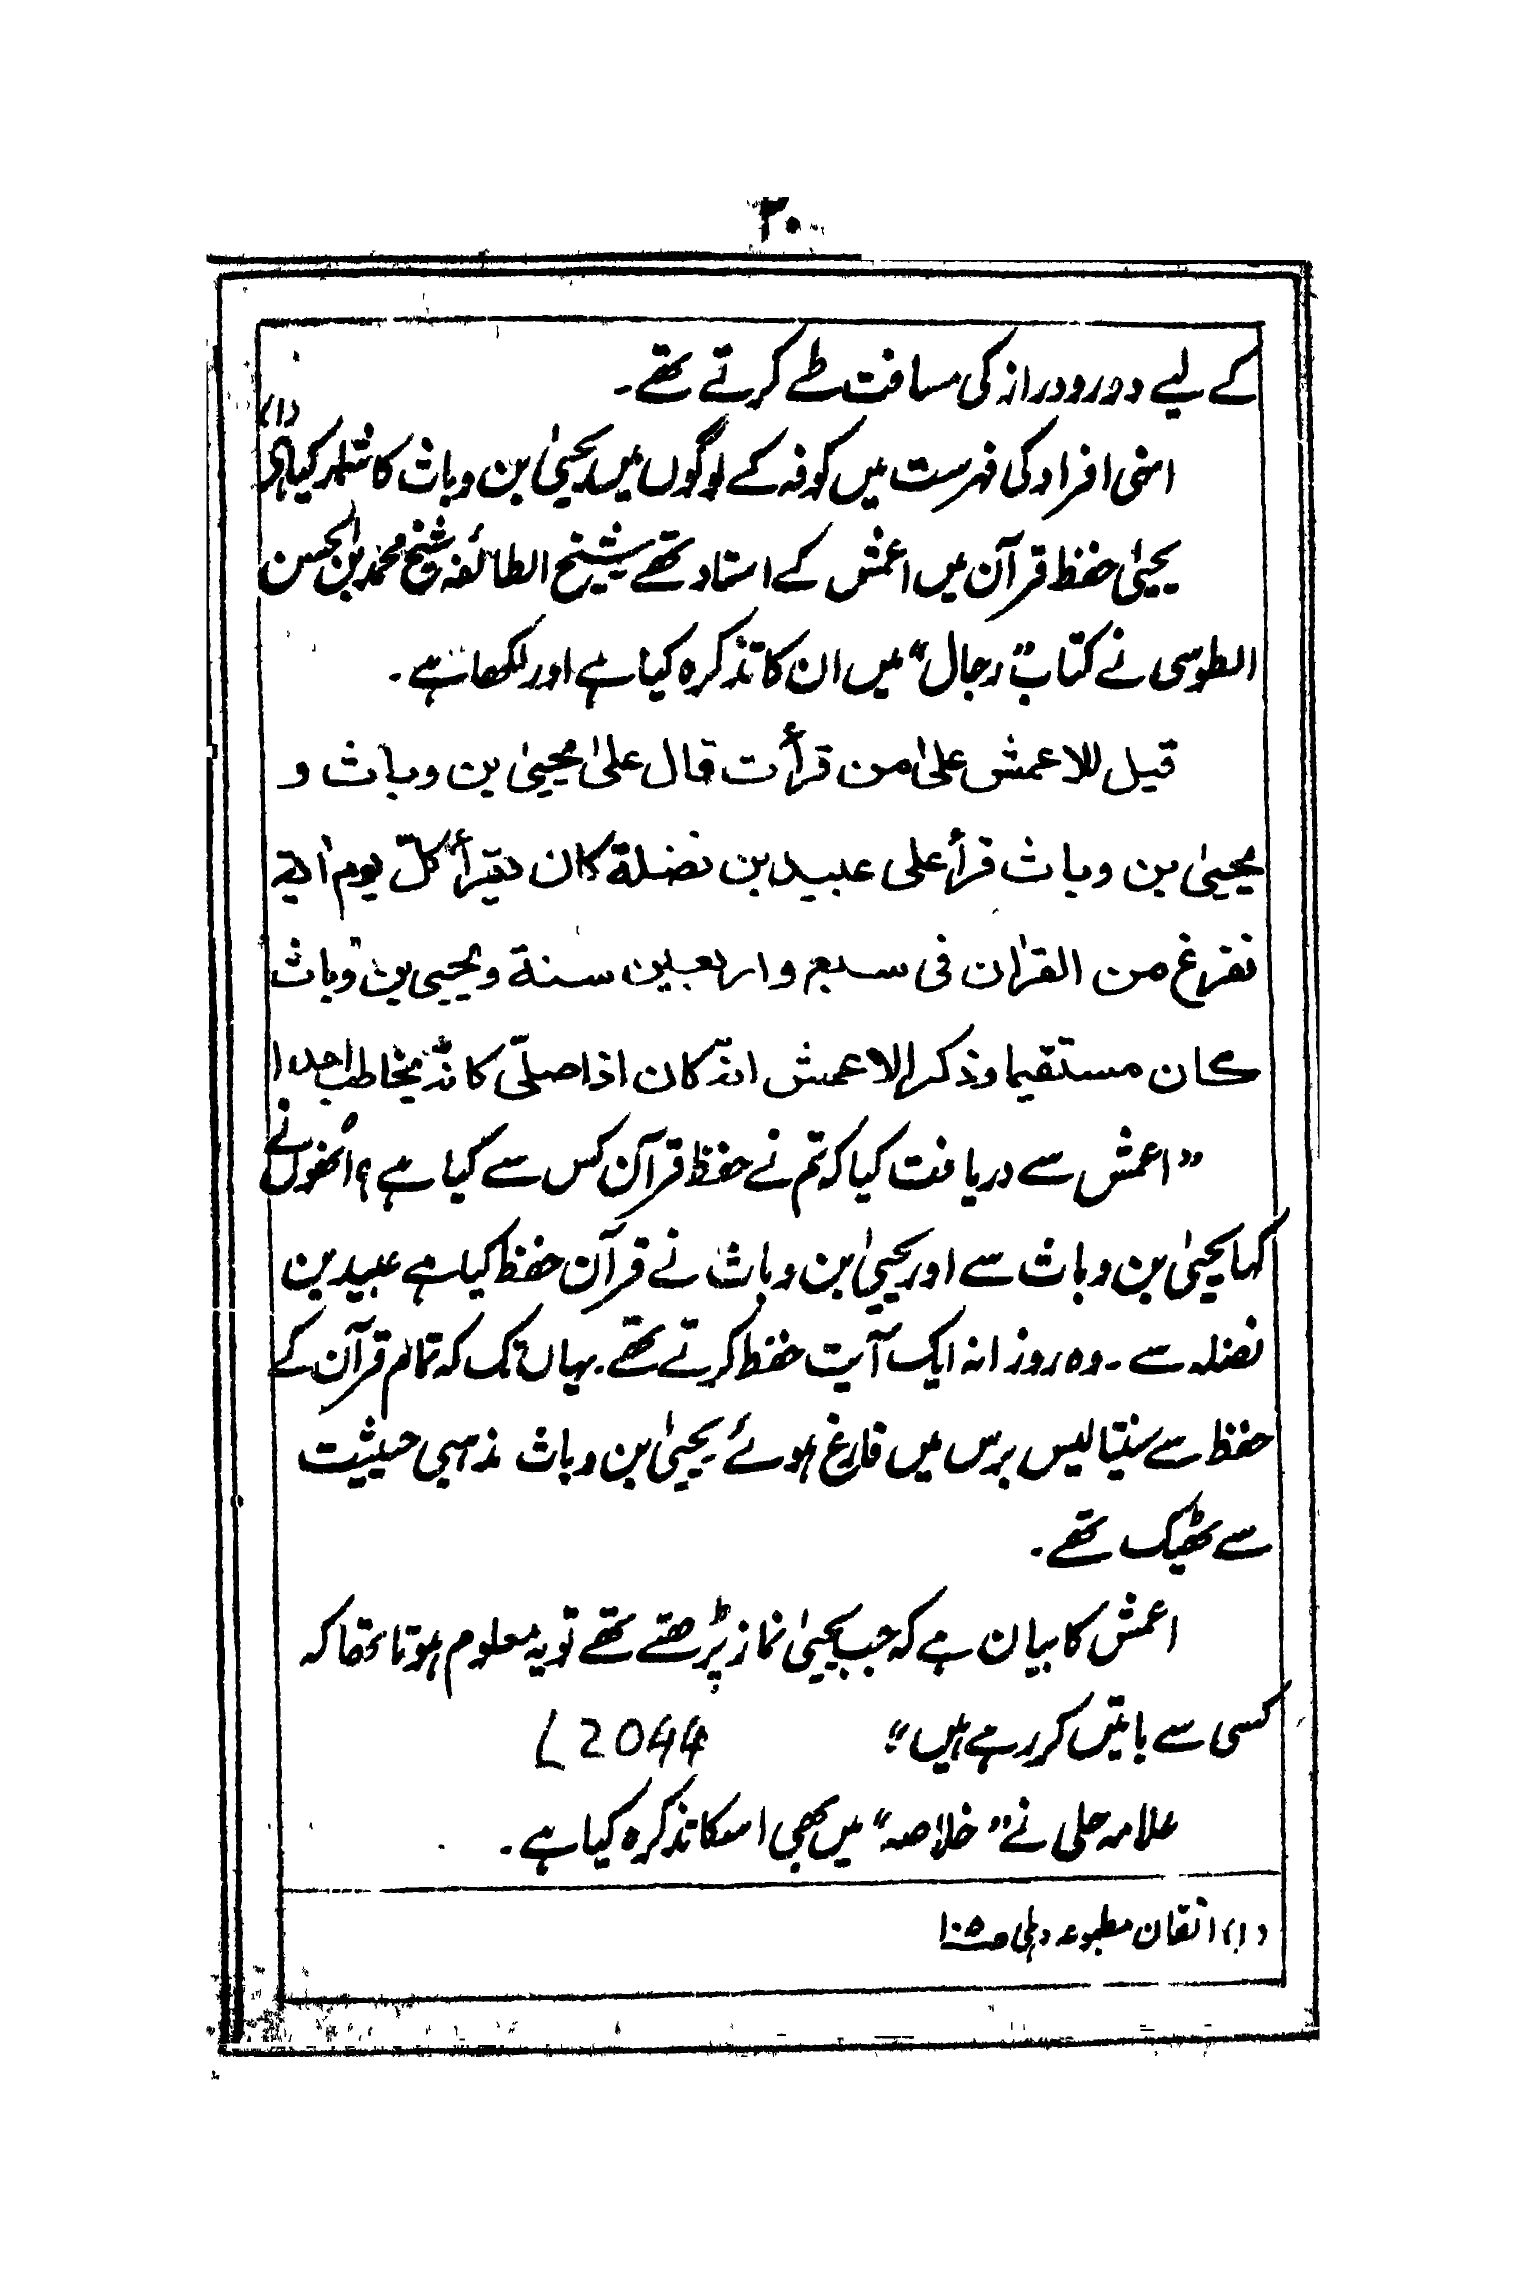 ۳۰
کے لیے دور و دراز کی مسافت طے کرتے تھے۔
انہی افراد کی فہرست میں کوفہ کے لوگوں میں یحییٰ بن وباث کا شمار کیا ہے (۱)
یحییٰ حفظ قرآن میں اعمش کے استاد تھے شیخ الطائفہ شیخ محمد بن الحسن
الطوسی نے کتاب "رجال" میں ان کا تذکرہ کیا ہے اور لکھا ہے۔
قیل للاعمش علیٰ من قرأت قال علیٰ یحییٰ بن وباث و
یحییٰ بن وباث قرأ علی عبید بن نضلة کان یقرأ کلّ یوم اٰیة
نفرغ من القراٰن فی سبع واربعین سنة ویحیی بن وباث
کان مستقیما وذکر الاعمش انہ کان اذا صلّی کانہ یخاطب احدا
"اعمش سے دریافت کیا کہ تم نے حفظ قرآن کس سے کیا ہے؟ انھوں نے
کہا یحییٰ بن وباث سے اور یحییٰ بن وباث نے قرآن حفظ کیا ہے عبید بن
نضلہ سے۔ وہ روزانہ ایک آیت حفظ کرتے تھے۔ یہاں تک کہ تمام قرآن کے
حفظ سے سنتیالیس برس میں فارغ ہوئے یحییٰ بن وباث مذہبی حیثیت
سے ٹھیک تھے۔
اعمش کا بیان ہے کہ جب یحییٰ نماز پڑھتے تھے تو یہ معلوم ہوتا تھا کہ
کسی سے باتیں کر رہے ہیں" L 2044
علامہ حلی نے "خلاصہ" میں بھی اسکا تذکرہ کیا ہے۔
(۱) اتقان مطبوعہ دہلی ص۱۰۵